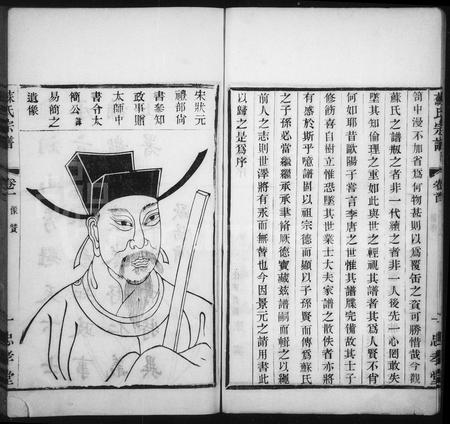 蘇氏宗譜
卷首
忠孝堂
笥中漫不加省爲何物甚則以爲覆缶之資可勝惜哉今觀
蘇氏之譜瓶之者非一代續之者非一人後先一心罔敢失
墜其知倫理之重如此與世之輕視其譜者其爲人賢不肖
何如耶昔歐陽子嘗言李唐之世惟其譜牒完備故其士子
修飭喜自樹立惟恐墜其世業士大夫家譜之散佚者亦將
有感於斯乎噫譜固以祖宗德而顯以子孫賢而傳爲蘇氏
之子孫必當繼繼承承聿脩厥德寶藏兹譜嗣而輯之以繩
前人之志則世澤將有永而無替也今因景元之請用書此
以歸之是爲序
宋狀元
禮部尚
書參知
政事贈
太師中
書令太
簡公諱
易簡之
遺像
蘇氏宗譜
卷
像贊
忠孝堂